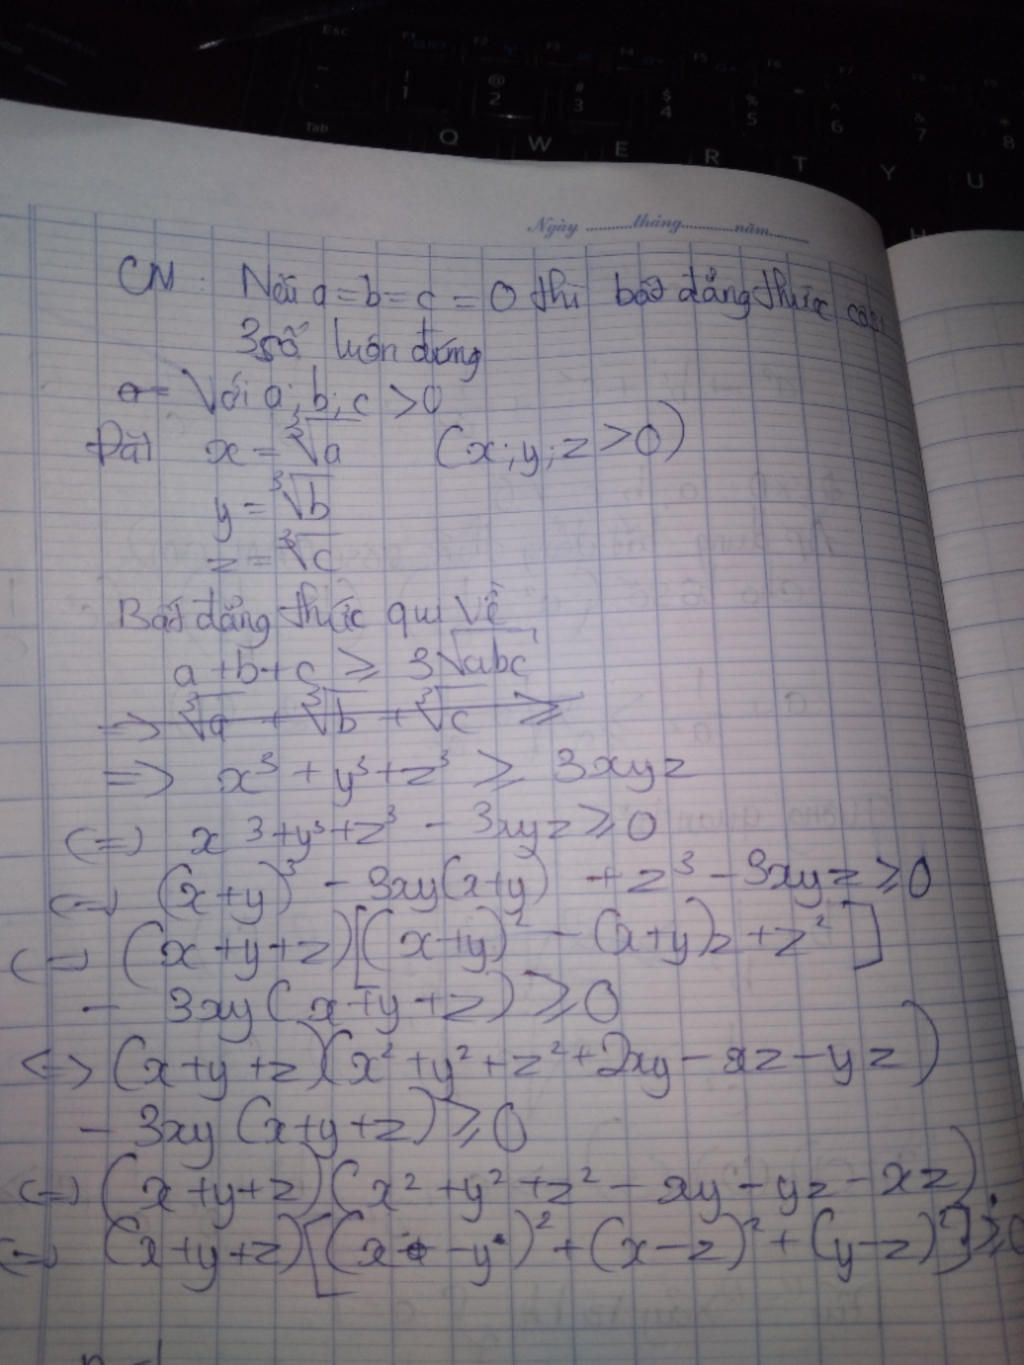 Esc F1 F2 F3 F4 F5 F6 F7
! 1 @ 2 # 3 $ 4 % 5 ^ 6 & 7 * 8
Tab Q W E R T Y U
Ngày ............tháng............năm............
CM: Nếu a = b = c = 0 thì bất đẳng thức côsi
3 số luôn đúng
Với a; b; c > 0
Đặt x = ∛a (x; y; z > 0)
y = ∛b
z = ∛c
Bất đẳng thức qui về
a + b + c ≥ 3√abc
=> ∛a + ∛b + ∛c ≥
=> x³ + y³ + z³ ≥ 3xyz
(=) x³ + y³ + z³ - 3xyz ≥ 0
(=) (x+y)³ - 3xy(x+y) + z³ - 3xyz ≥ 0
(=) (x+y+z)[(x+y)² - (x+y)z + z²]
- 3xy(x+y+z) ≥ 0
<=> (x+y+z)(x² + y² + z² + 2xy - xz - yz)
- 3xy(x+y+z) ≥ 0
(=) (x+y+z)(x² + y² + z² - xy - yz - xz)
(=) (x+y+z)[(x - y)² + (x-z)² + (y-z)²] ≥ 0